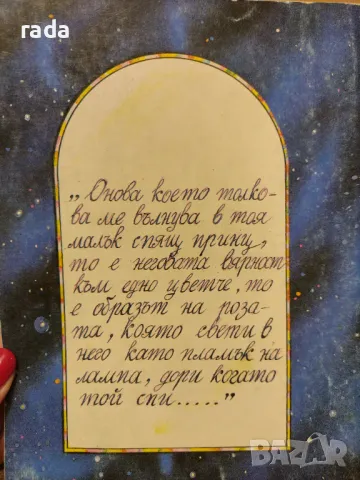 rada
„Онова което толко-
ва ме вълнува в тоя
малък спящ принц,
то е неговата вярност
към едно цветче, то
е образът на роза-
та, която свети в
него като пламък на
лампа, дори когато
той спи....."
BAZAR